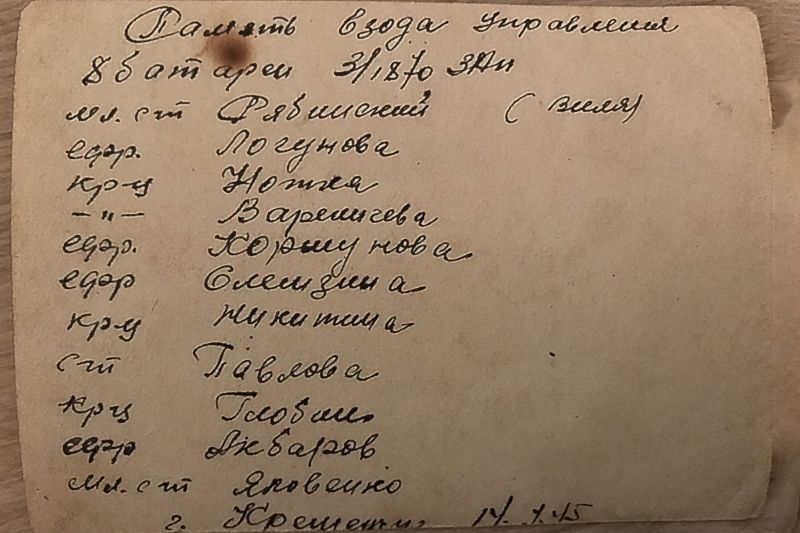 Память взода управления
8 батареи 3/1870 ЗАп
мл. ст Рябинский (Виля)
ефр. Логунова
кр-ц Ножка
—"— Вареничева
ефр. Коршунова
ефр Слемзина
кр-ц Никитина
с-т Павлова
кр-ц Глобин
ефр Акбаров
мл. с-т Яковенко
г. 14. 1. 45